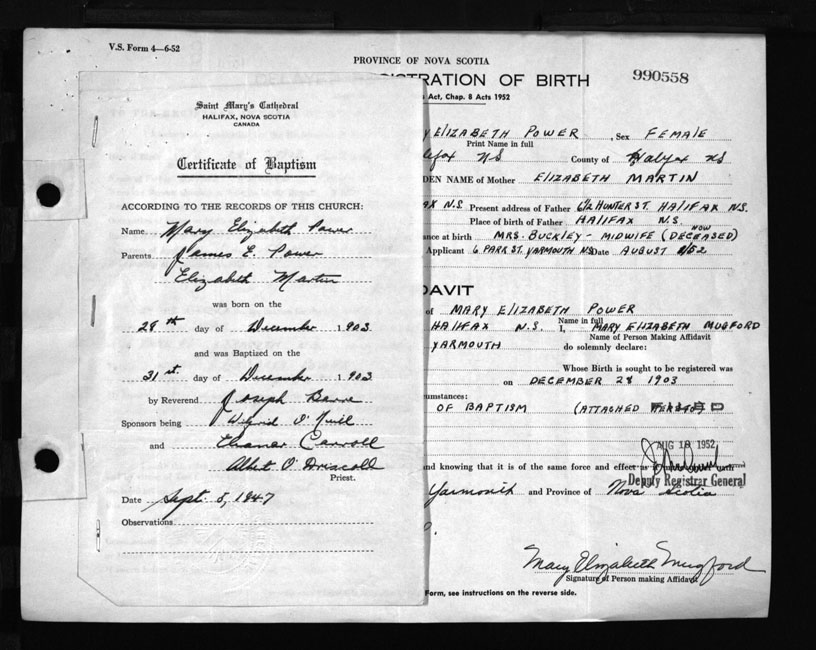 V.S. Form 4—6-52
PROVINCE OF NOVA SCOTIA
GISTRATION OF BIRTH
990558
Act, Chap. 8 Acts 1952
Saint Mary's Cathedral
HALIFAX, NOVA SCOTIA
CANADA
Certificate of Baptism
ACCORDING TO THE RECORDS OF THIS CHURCH:
Name Mary Elizabeth Power
Parents James E. Power
Elizabeth Martin
was born on the
28th day of December 1903
and was Baptized on the
31st day of December 1903
by Reverend Joseph
Sponsors being Wilfrid O'Neill
and Eleanor Carroll
Albert O'Driscoll
Priest.
Date Sept. 5, 1947
Observations
Y ELIZABETH POWER, Sex FEMALE
Print Name in full
lifax NS County of Halifax NS
DEN NAME of Mother ELIZABETH MARTIN
AX N.S. Present address of Father 62 HUNTER ST. HALIFAX N.S.
Place of birth of Father HALIFAX N.S.
ance at birth MRS. BUCKLEY - MIDWIFE (NOW DECEASED)
Applicant 6 PARR ST. YARMOUTH NS Date AUGUST /52
DAVIT
of MARY ELIZABETH POWER
Name in full
HALIFAX N.S. I, MARY ELIZABETH MUGFORD
Name of Person Making Affidavit
YARMOUTH do solemnly declare:
Whose Birth is sought to be registered was
on DECEMBER 28 1903
umstances:
OF BAPTISM (ATTACHED
AUG 18 1952
nd knowing that it is of the same force and effect as
Deputy Registrar General
Yarmouth and Province of Nova Scotia
Mary Elizabeth Mugford
Signature of Person making Affidavit
Form, see instructions on the reverse side.